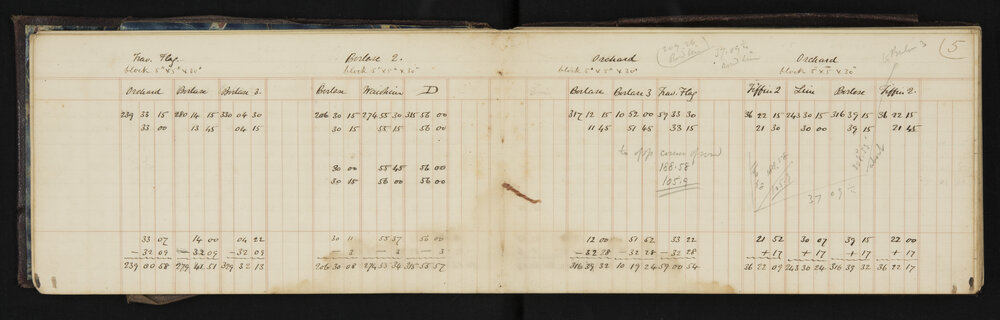 5
Trav. Flag.
block 5" x 5" x 20"
Orchard Borlase Borlase 3.
239 33 15 280 14 15 330 04 30
33 00 13 45 04 15
33 07 14 00 04 22
— 32 09 — 32 09 — 32 09
239 00 58 279 41 51 329 32 13
Borlase 2.
block 5" x 5" x 20"
Borlase D
206 30 15 274 55 30 315 56 00
30 15 55 15 56 00
30 00 55 45 56 00
30 15 56 00 56 00
30 11 55 37 56 00
— 3 — 3 — 3
206 30 08 274 55 34 315 55 57
Orchard
block 5" x 5" x 20"
Borlase Borlase 3 Trav. Flag
317 12 15 10 52 00 59 33 30
11 45 51 45 33 15
to opp corner
168.58
105.9
12 00 51 52 33 22
— 32 28 — 32 28 — 32 28
316 39 32 10 19 24 59 00 54
Orchard
block 5" x 5" x 20"
Tiffin 2 Line Borlase Tiffin 2.
36 22 15 243 30 15 316 39 15 36 22 15
21 30 30 00 39 15 21 45
21 52 30 07 39 15 22 00
+ 17 + 17 + 17 + 17
36 22 09 243 30 24 316 39 32 36 22 17